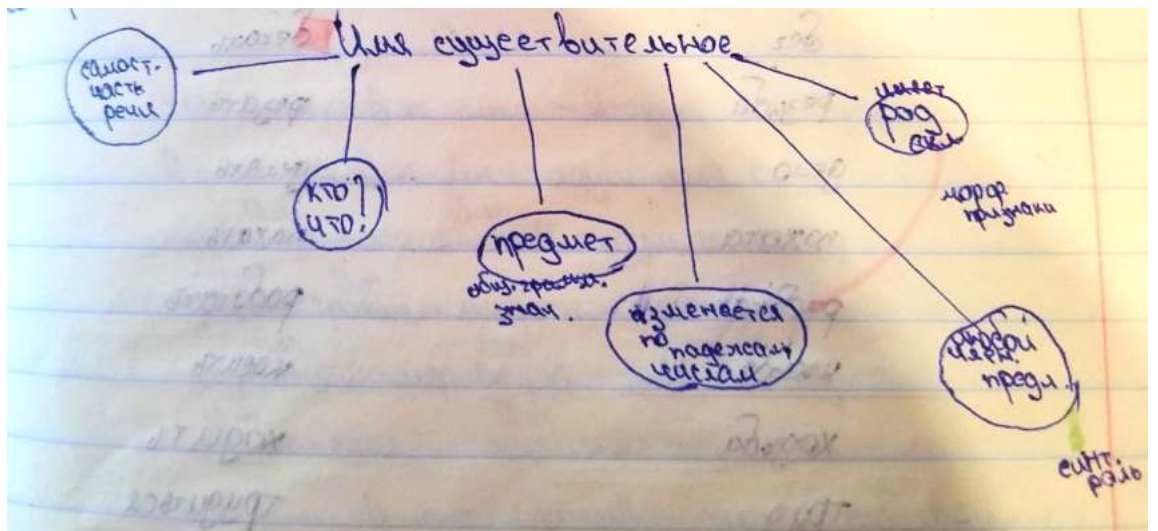 Имя существительное
самост.
часть
речи
кто?
что?
предмет
общ. грам.
знач.
изменяется
по
падежам,
числам
имеет
род
скл
морф
признаки
любой
член.
предл.
синт.
роль